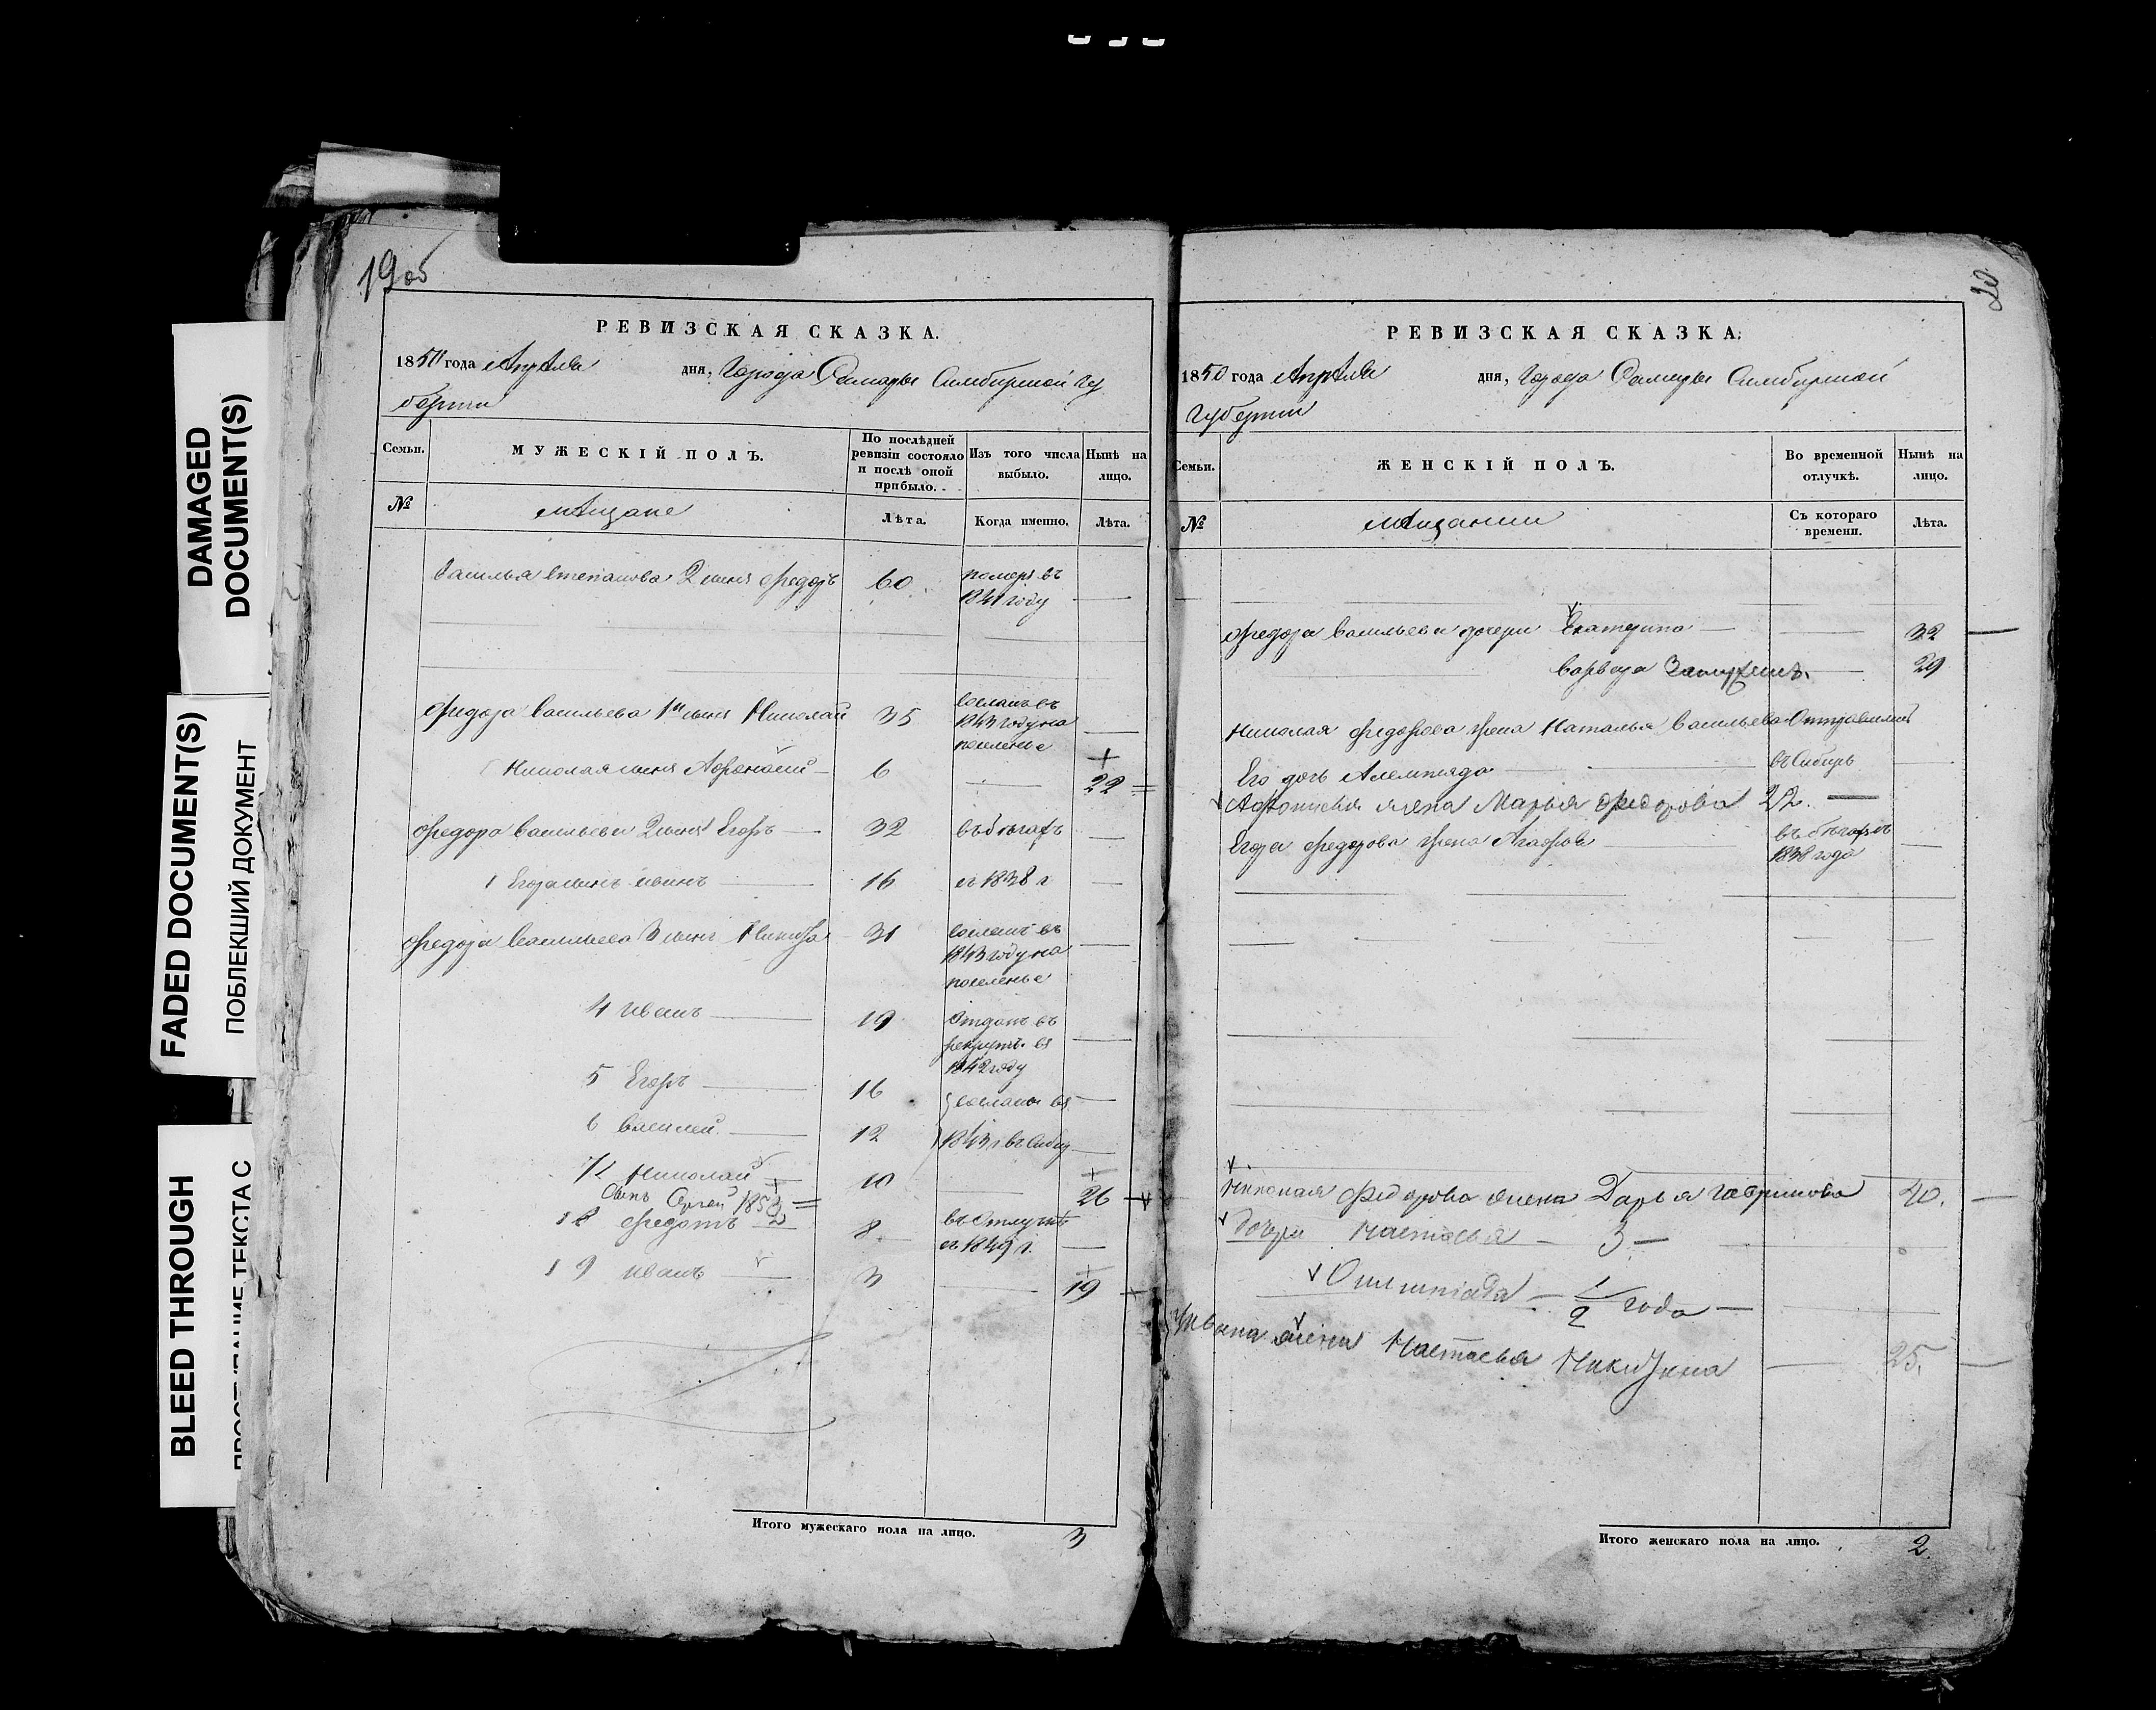 DAMAGED
DOCUMENT(S)
FADED DOCUMENT(S)
ПОБЛЕКШИЙ ДОКУМЕНТ
BLEED THROUGH
ТЕКСТА С
19 об
РЕВИЗСКАЯ СКАЗКА.
1850 года Апрѣля дня, Города Самары Симбирской гу
берніи
Семьи.
МУЖЕСКІЙ ПОЛЪ.
По послѣдней
ревизіи состояло
и послѣ оной
прибыло.
Изъ того числа
выбыло.
Нынѣ на
лицо.
№
мѣщане
Лѣта.
Когда именно.
Лѣта.
Василья Степанова 2 сынъ Федоръ 60 померъ въ
1841 году
Федора Васильева 1й сынъ Николай 35 сосланъ въ
1843 году на
поселенье
Николая сынъ Афонасий 6 22
Федора Васильева 2 сынъ Егоръ 32 въ бѣгахъ
1 Егора сынъ Иванъ 16 съ 1838 г
Федора Васильева 3 сынъ Никита 31 сосланъ въ
1843 году на
поселенье
4 Иванъ 19 Отданъ въ
рекруты въ
1842 году
5 Егоръ 16 сосланы въ
6 Василей 12 1843 г въ Сибирь
7 Николай 10 26
Сынъ Сергей 185
8 Федотъ 8 въ Отлучкѣ
съ 1849 г.
9 Иванъ 3 19
Итого мужескаго пола на лицо. 3
20
РЕВИЗСКАЯ СКАЗКА.
1850 года Апрѣля дня, Города Самары Симбирской
Губерніи
Семьи.
ЖЕНСКІЙ ПОЛЪ.
Во временной
отлучкѣ.
Нынѣ на
лицо.
№
мѣщанки
Съ котораго
времени.
Лѣта.
Федора Васильева дочери Екатерина 32
Варвара Замужемъ. 29
Николая Федорова жена Наталья Васильева Отправились
Его дочь въ Сибирь
жена Марья Федорова 22.
Егора Федорова жена Агафья въ бѣгахъ съ
1838 года
Николая Федорова жена Дарья Гаврилова 40.
дочери Настасья — 3 —
Олимпіада — 1/2 года —
Ивана жена Настасья Никитина 25.
Итого женскаго пола на лицо. 2